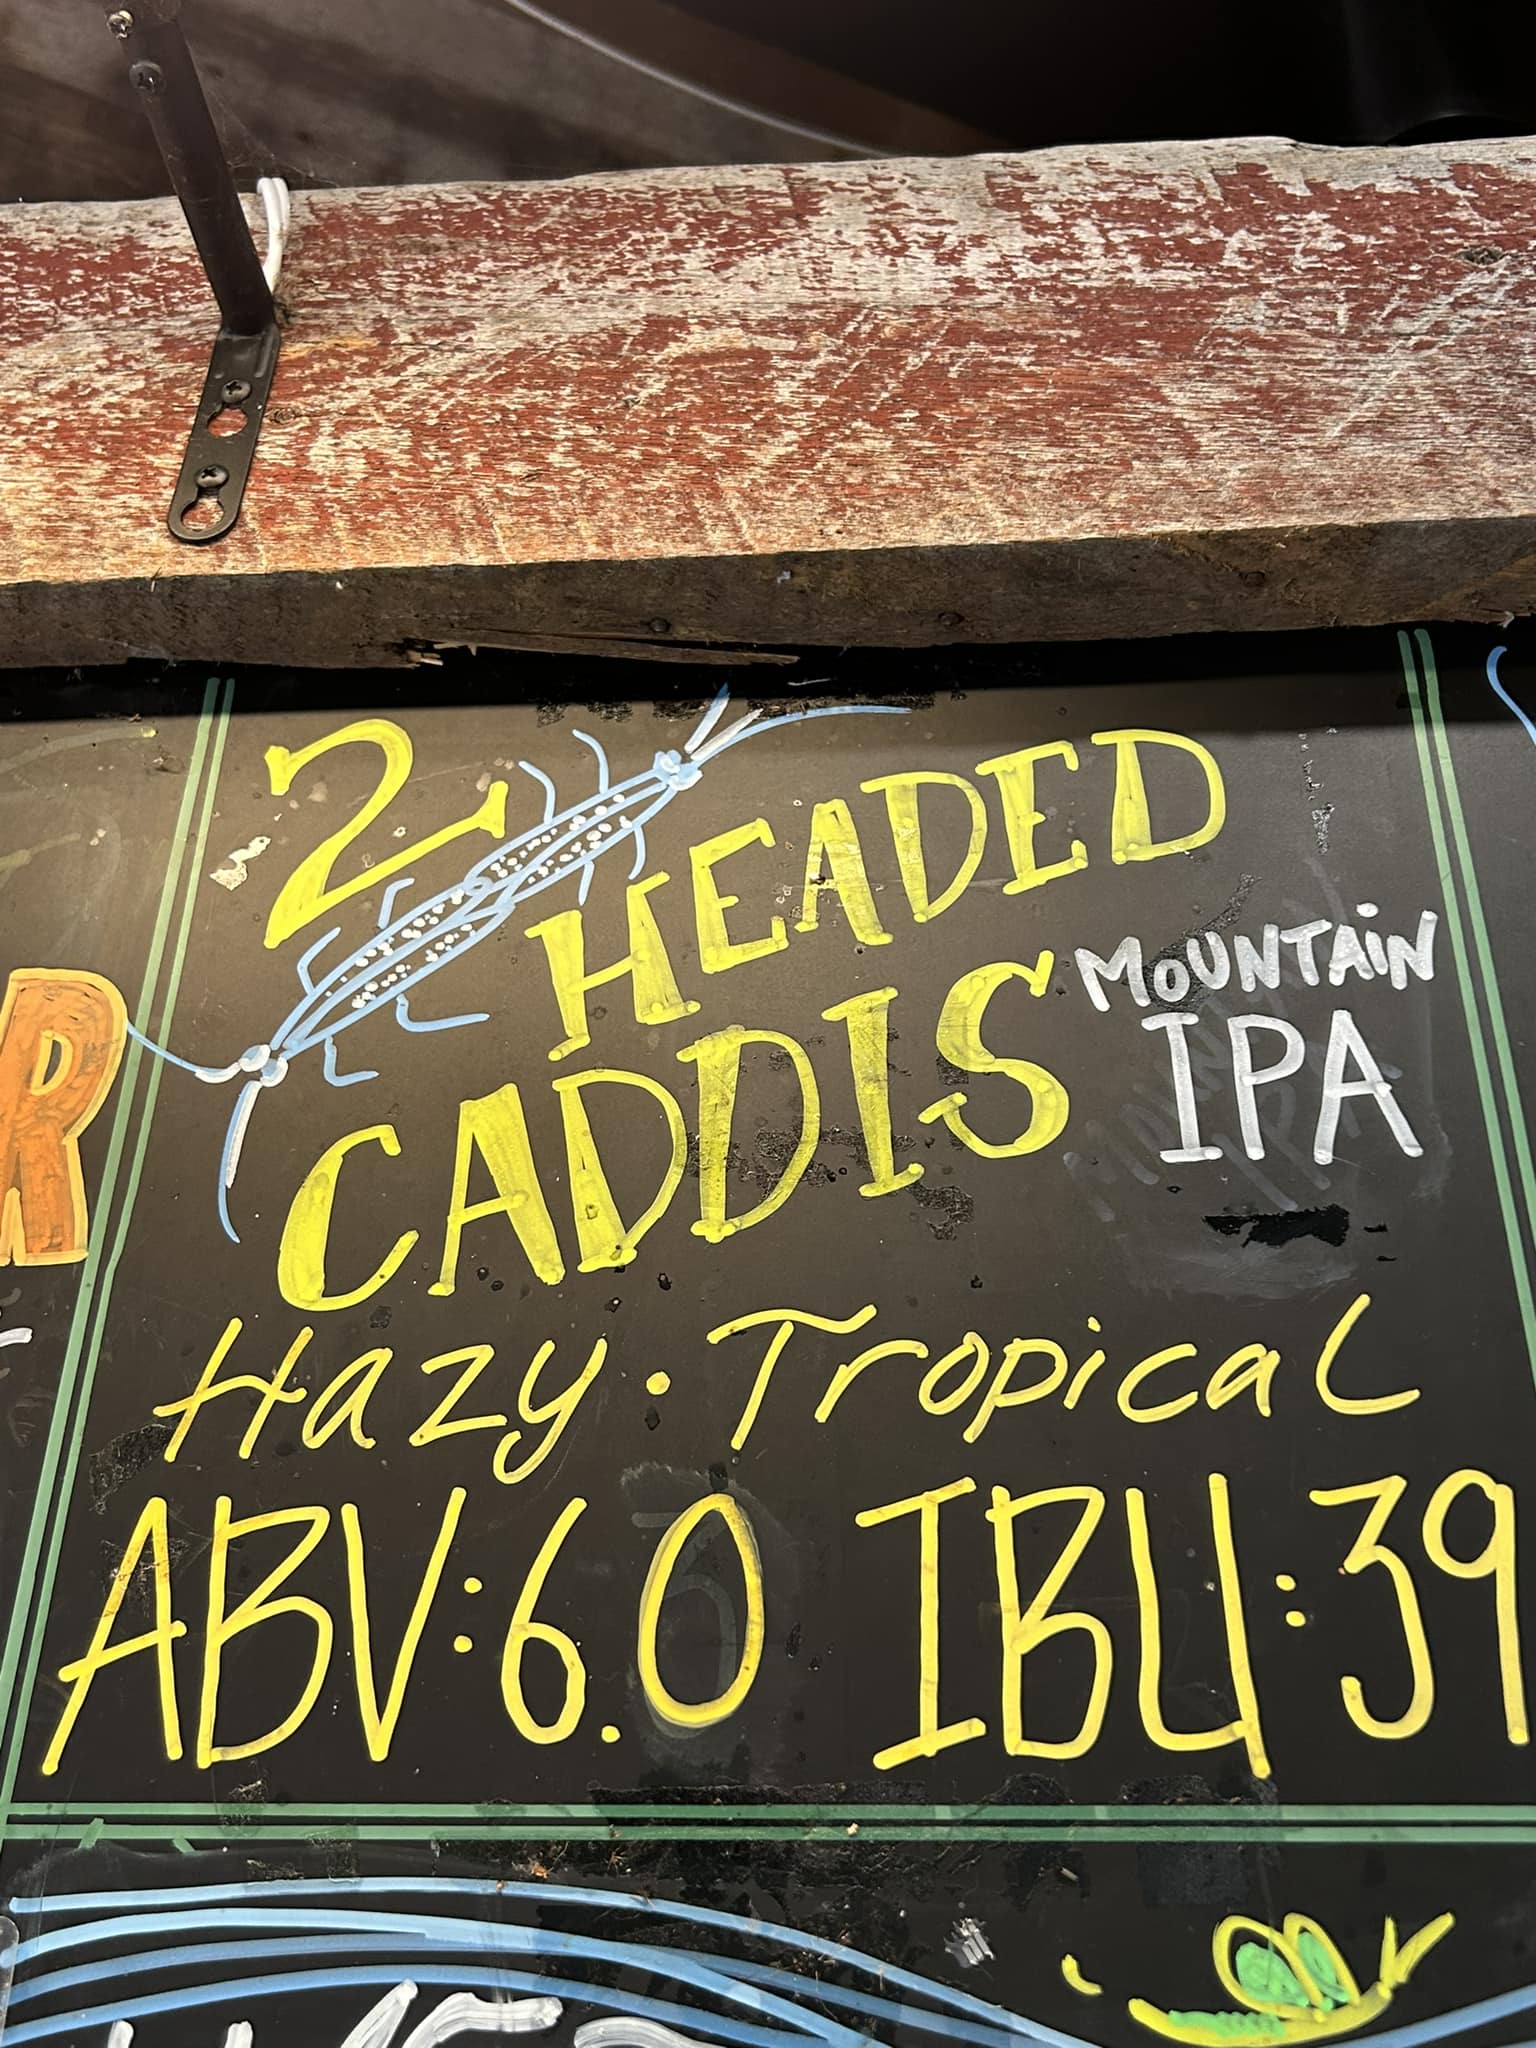 2 HEADED
CADDIS
MOUNTAIN
IPA
Hazy · Tropical
ABV: 6.0 IBU: 39
R